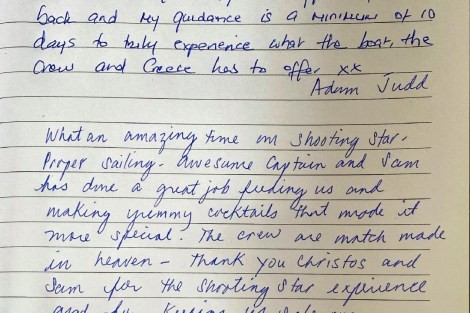 back and my guidance is a minimum of 10
days to truly experience what the boat, the
crew and Greece has to offer xx
Adam Judd
What an amazing time on Shooting Star.
Proper sailing. Awesome Captain and Sam
has done a great job feeding us and
making yummy cocktails that made it
more special. The crew are match made
in heaven - Thank you Christos and
Sam for the Shooting Star experience
and for keeping us safe